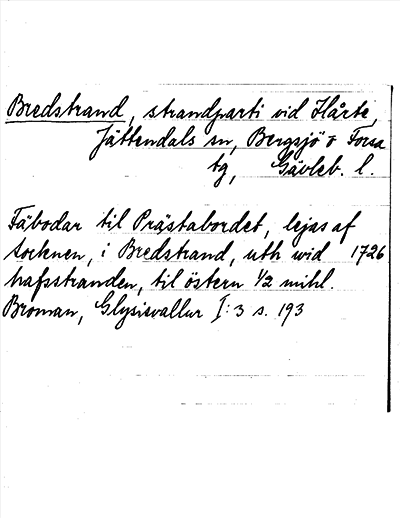 Bredstrand, strandparti vid Hårte,
Jättendals sn, Bergsjö o Forsa
tg, Gävleb. l.
Fäbodar til Prästabordet, lejas af
socknen, i Bredstrand, uth wid 1726
hafsstranden, til östern 1/2 mihl.
Broman, Glysisvallur I:3 s. 193